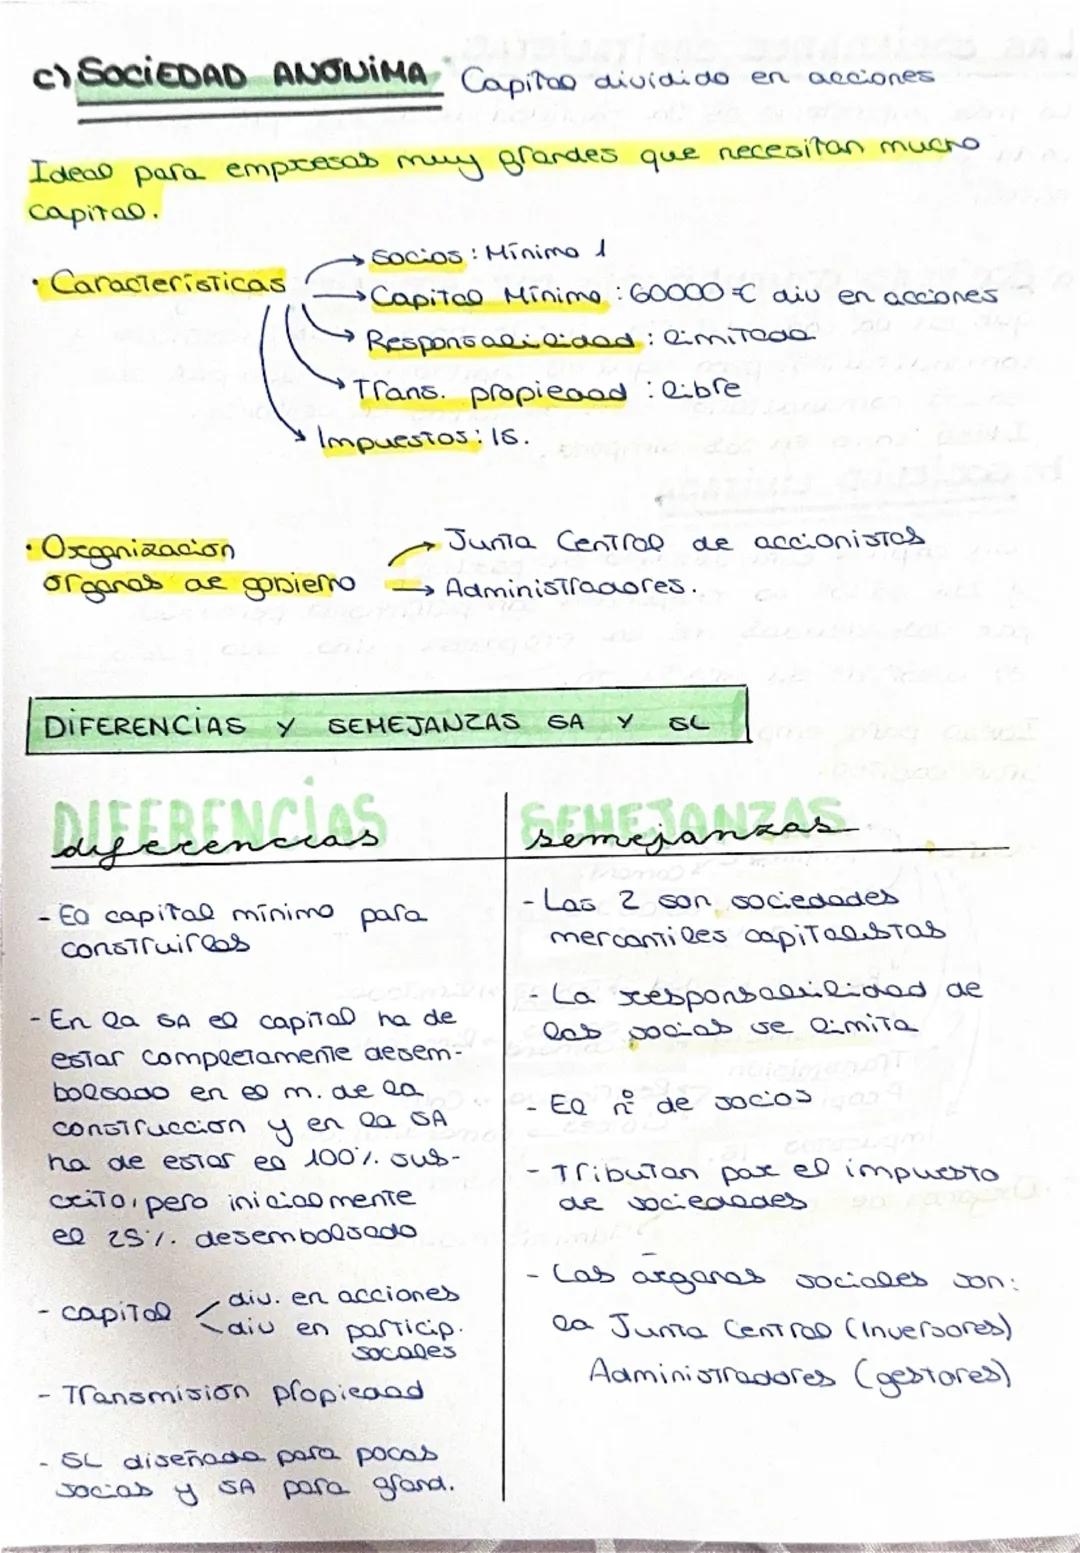 c) SOCIEDAD ANONIMA. Capital dividido en acciones
Ideal para empresas muy grandes que necesitan mucho
capital.
· Características
→ Socios: Mínimo 1
→ Capital Mínimo: 60000 € div en acciones
→ Responsabilidad: limitada
→ Trans. propiedad: libre
→ Impuestos: IS.
· Organización
órganos de gobierno
→ Junta Central de accionistas
→ Administradores.
DIFERENCIAS Y SEMEJANZAS SA Y SL
DIFERENCIAS
diferencias
- El capital mínimo para
construirlas
- En la SA el capital ha de
estar completamente desem-
bolsado en el m. de la
construccion y en la SA
ha de estar el 100% sus-
crito, pero inicialmente
el 25%. desembolsado
- capital
div. en acciones
div en particip.
socales
- Transmisión propiedad
- SL diseñada para pocos
socios y SA para grand.
SEMEJANZAS
semejanzas
- Las 2 son sociedades
mercantiles capitalistas
- La responsabilidad de
los socios se limita
- El nº de socios
- Tributan por el impuesto
de sociedades
- Los órganos sociales son:
la Junta Central (Inversores)
Administradores (gestores)